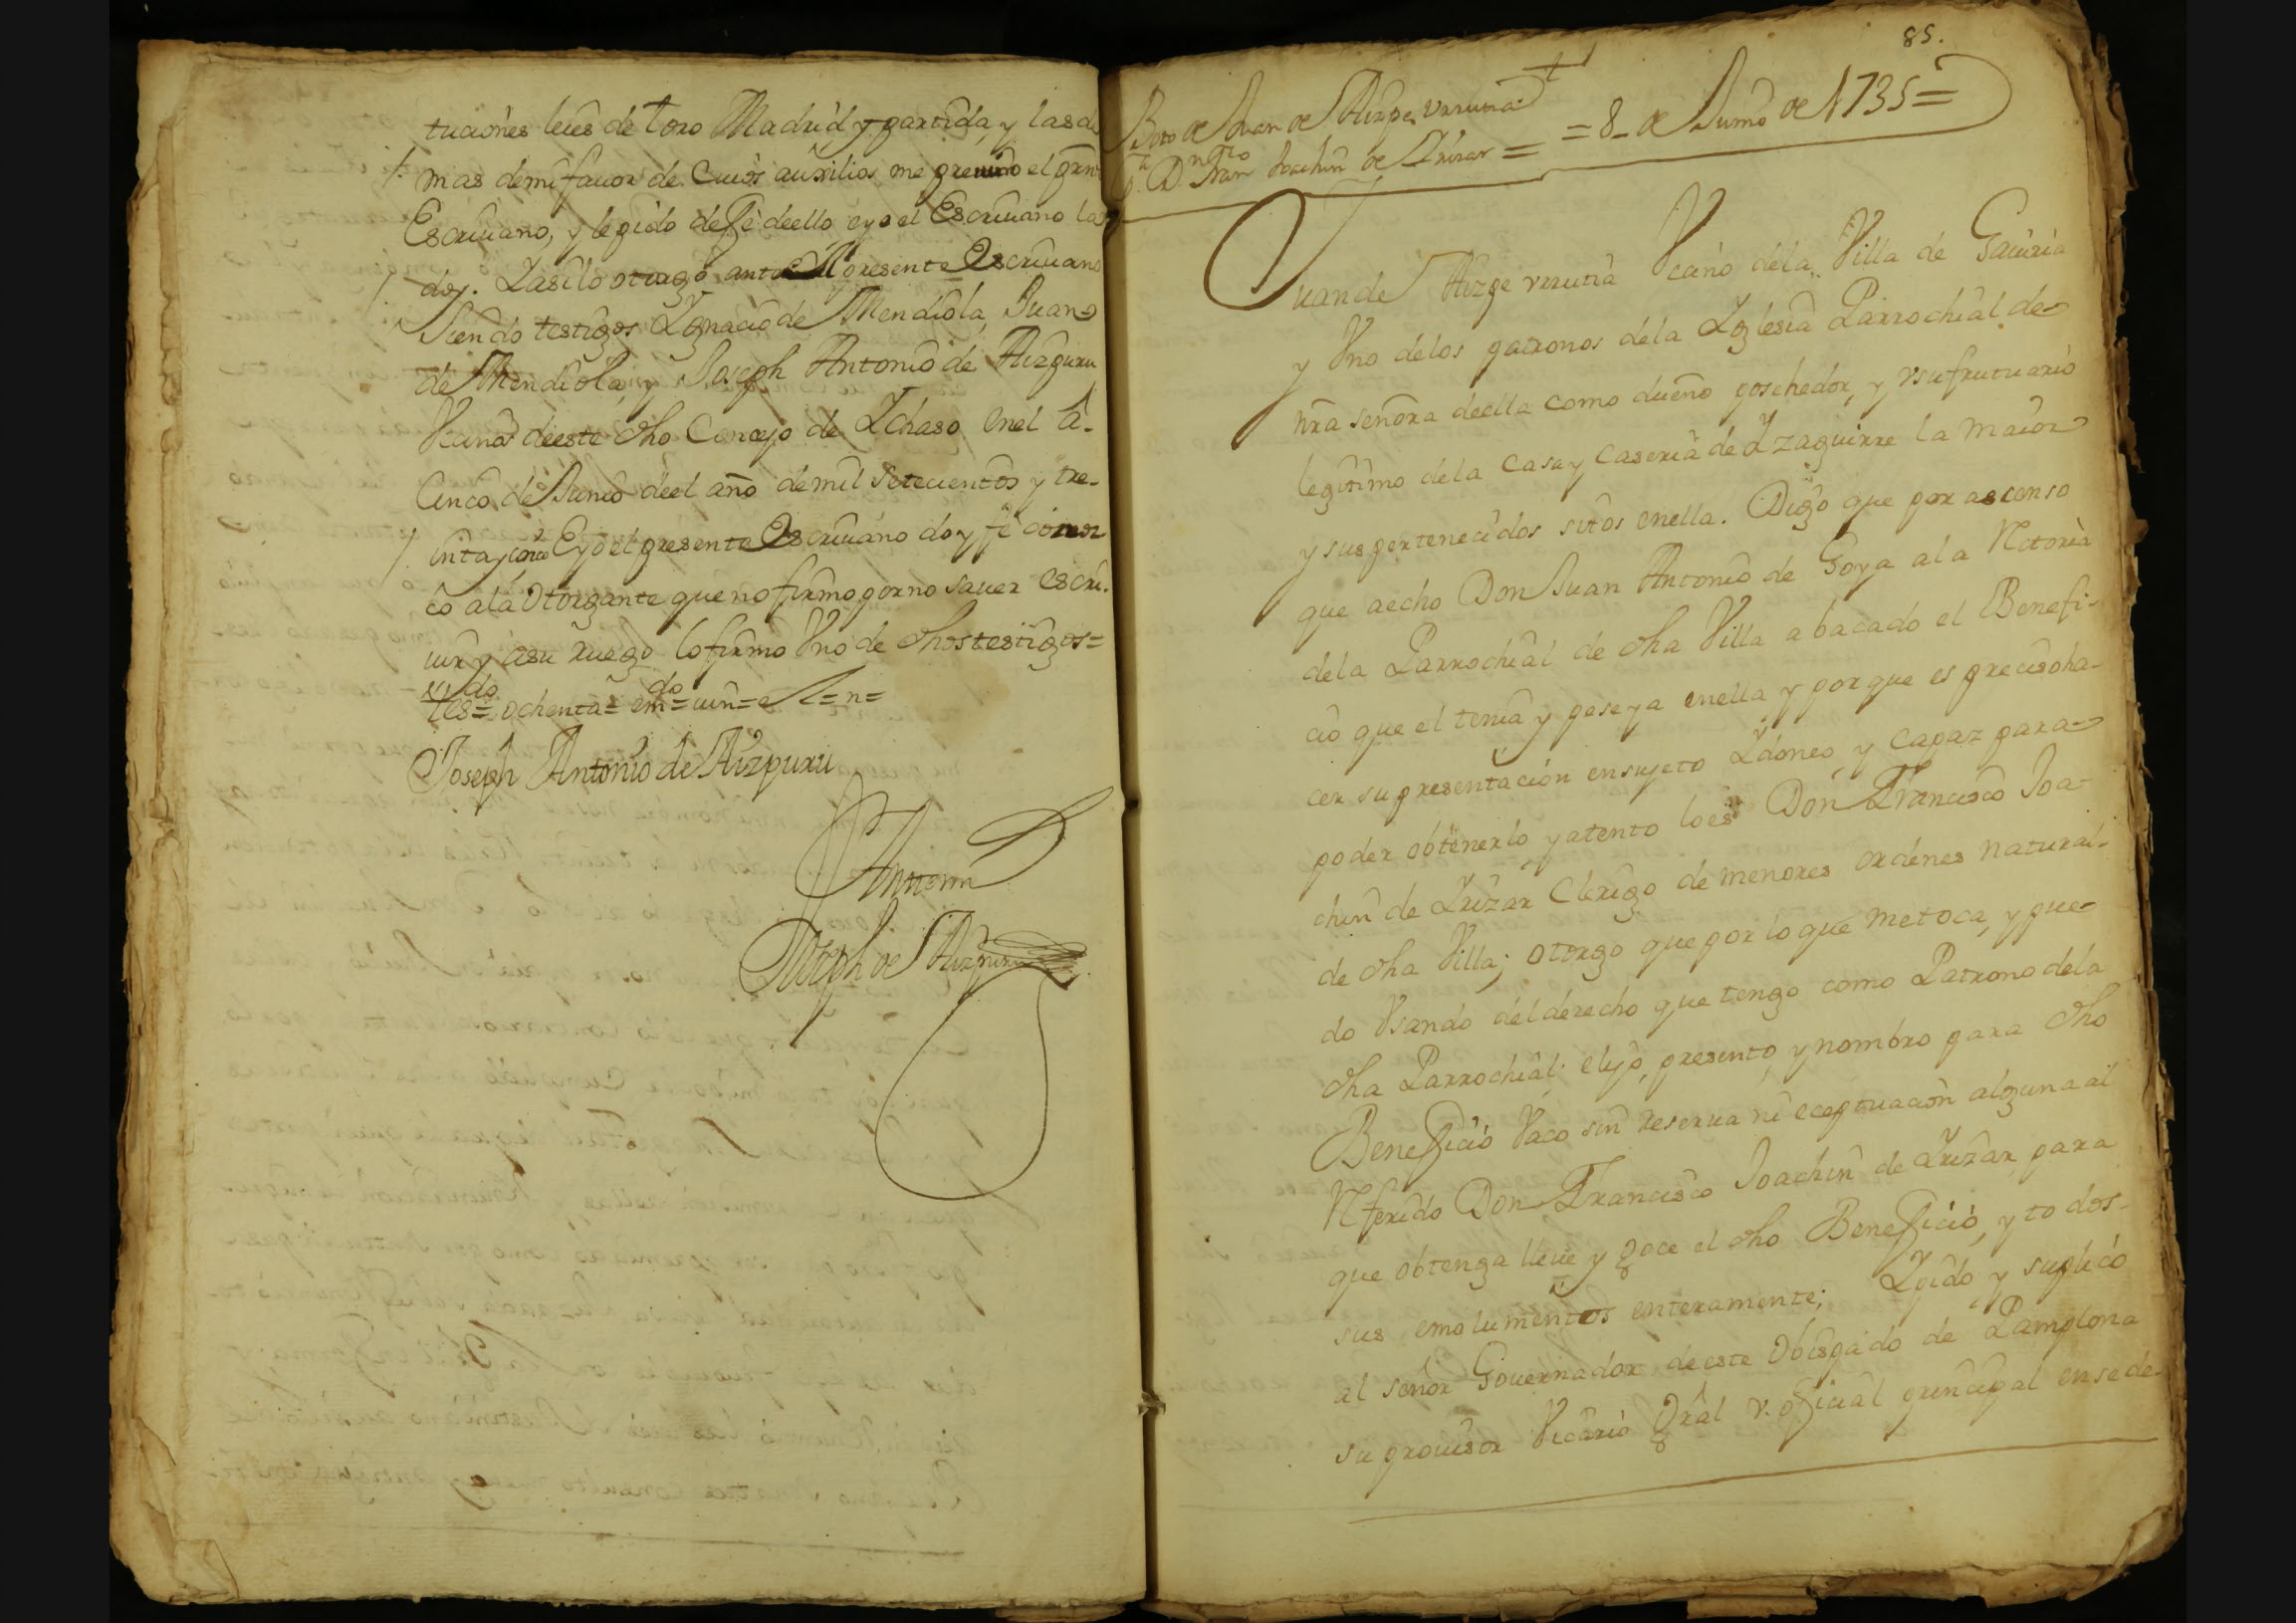 tuciones leies de toro Madrid y partida, y las de
mas de mi favor de cuios auxilios me previno el presnte
Escriuano, y le pido de fe de ello e yo el Escriuano la
doy. Y asi lo otorgo ante el presente Escriuano
siendo testigos Ygnacio de Mendiola, Juan
de Mendiola, y Joseph Antonio de Aizpuru
Vecinos de este dho Concejo de Ychaso en el a
Cinco de Junio de el año de mil setecientos y tre-
inta y cinco E yo el presente Escriuano doy fe conoz
co a la Otorgante que no firmo por no sauer escri-
uir y a su ruego lo firmo Vno de dhos testigos =
tes.do = ochenta = em.do = uin = el = n =
Joseph Antonio de Aizpuru
Antemi
Joseph de Aizpuru
85.
Boto de Juan de Aizpe vrrutia
p.a D.n Fran.co Joachin de Irizar = = 8 - de Junio de 1735 =
Juan de Aizpe vrrutia Vecino de la Villa de Gauiria
y Vno de los patronos de la Yglesia Parrochial de
nra señora de ella como dueño poschedor, y vsufrutuario
legitimo de la casa y caseria de Yzaguirre la maior
y sus pertenecidos sitos en ella. Digo que por ascenso
que a echo Don Juan Antonio de Goya a la Retoria
de la Parrochial de dha Villa a bacado el Benefi-
cio que el tenia y poseya en ella y porque es preciso ha-
cer su presentacion en sujeto Ydoneo, y capaz para
poder obtenerlo y atento lo es Don Francisco Joa-
chin de Yrizar Clerigo de menores ordenes natural
de dha Villa; otorgo que por lo que me toca, y pue-
do Vsando del derecho que tengo como Patrono de la
dha Parrochial elijo, presento, y nombro para dho
Beneficio Vaco sin reserua ni eceptuacion alguna al
Referido Don Francisco Joachin de Yrizar, para
que obtenga lleue y goce el dho Beneficio, y todos
sus emolumentos enteramente; Y pido y suplico
al señor Gouernador de este Obispado de Pamplona
su prouisor Vicario gral v oficial principal en sede